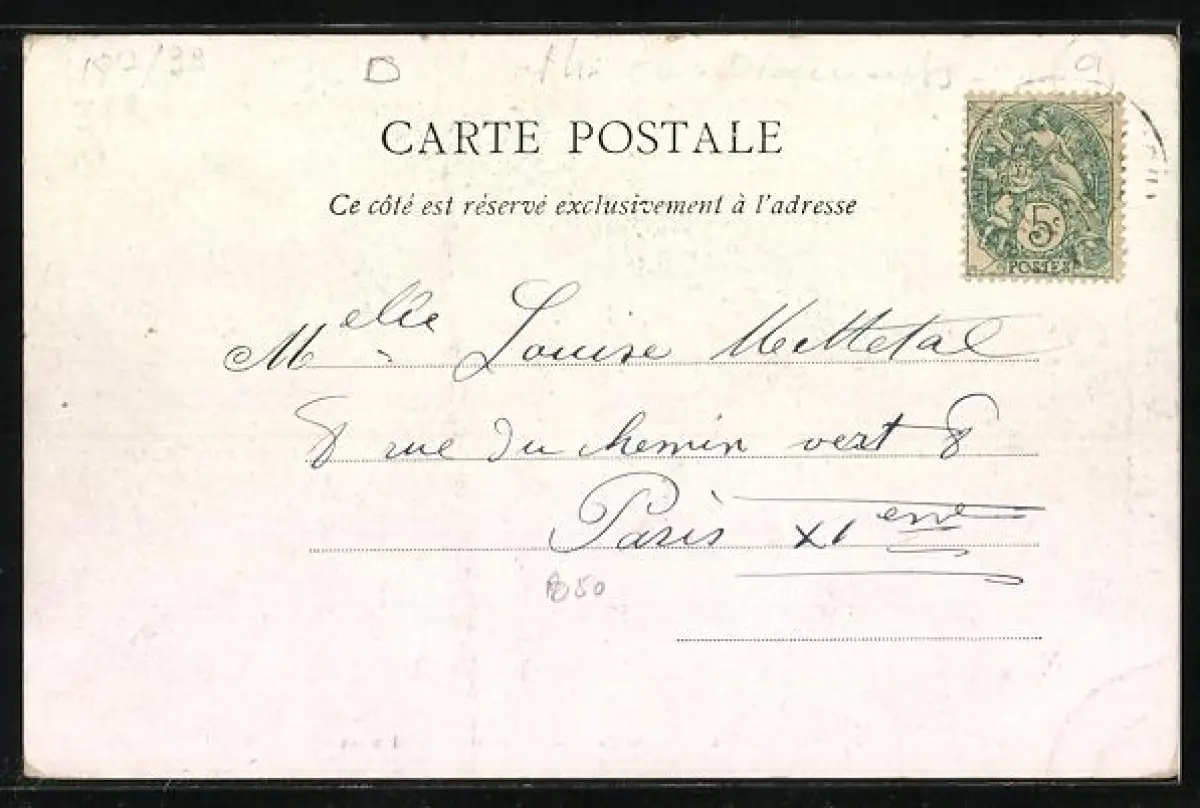 187/33
D
CARTE POSTALE
Ce côté est réservé exclusivement à l'adresse
5c
POSTES
Melle Louise Mettetal
8 rue du chemin vert 8
Paris XI eme
50